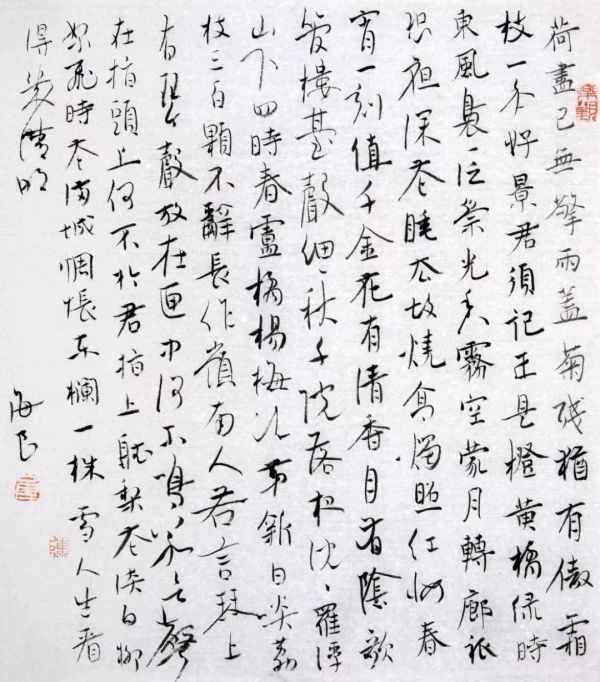 荷盡已無擎雨蓋菊殘猶有傲霜
枝一年好景君須記正是橙黃橘綠時
東風裊々泛崇光香霧空蒙月轉廊祇
恐夜深花睡去故燒高燭照紅妝春
宵一刻值千金花有清香月有陰歌
管樓臺聲細々秋千院落夜沈々羅浮
山下四時春盧橘楊梅次第新日啖荔
枝三百顆不辭長作嶺南人若言琴上
有琴聲放在匣中何不鳴若言聲
在指頭上何不於君指上聽梨花淡白柳
絮飛時花滿城惆悵東欄一株雪人生看
得幾清明